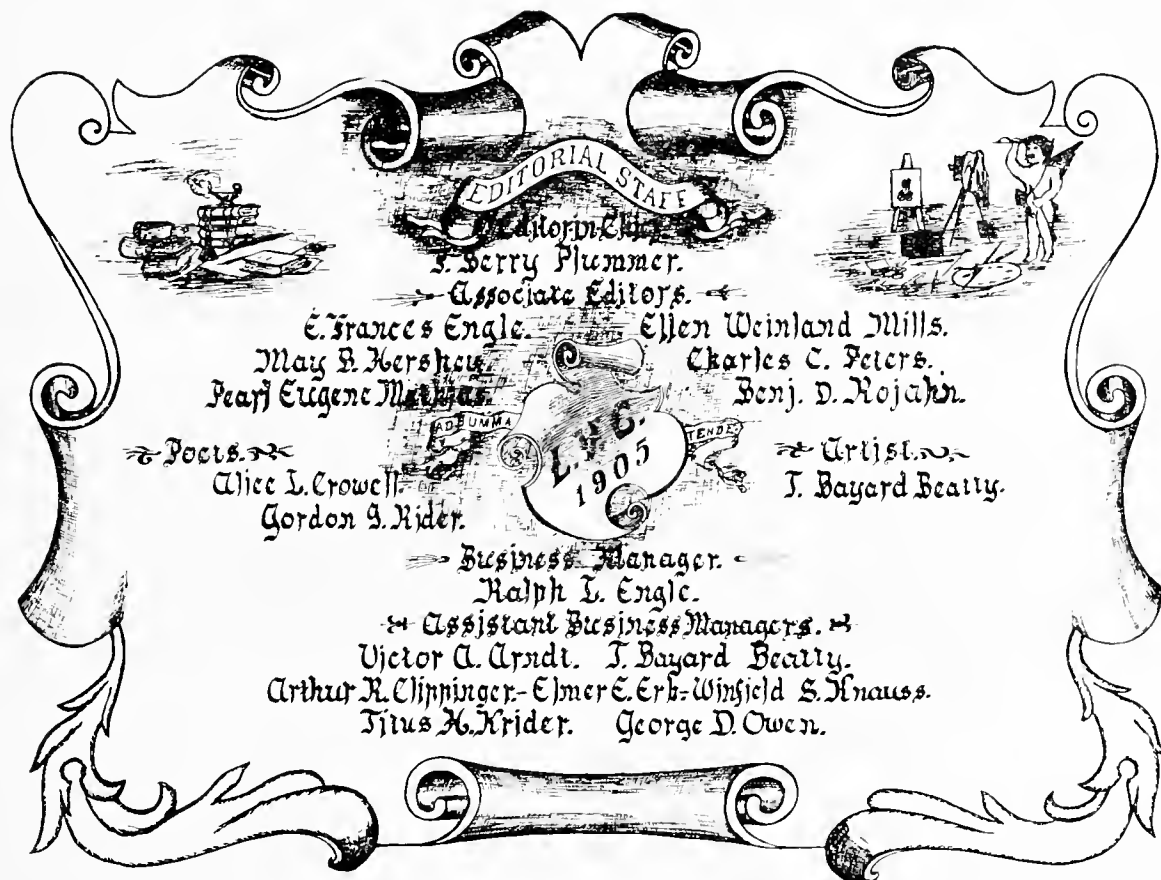 EDITORIAL STAFF
Editor in Chief.
Berry Plummer.
Associate Editors.
E. Frances Engle. Ellen Weinland Mills.
May B. Hershey. Charles C. Peters.
Pearl Eugene Mathias. Benj. D. Rojahn.
AD SUMMA TENDE
L. V. C.
1905
Poets.
Alice L. Crowell.
Gordon I. Rider.
Artist.
T. Bayard Beatty.
Business Manager.
Ralph L. Engle.
Assistant Business Managers.
Victor A. Arndt. T. Bayard Beatty.
Arthur R. Clippinger - Elmer E. Erb - Winfield S. Knauss.
Titus H. Krider. George D. Owen.